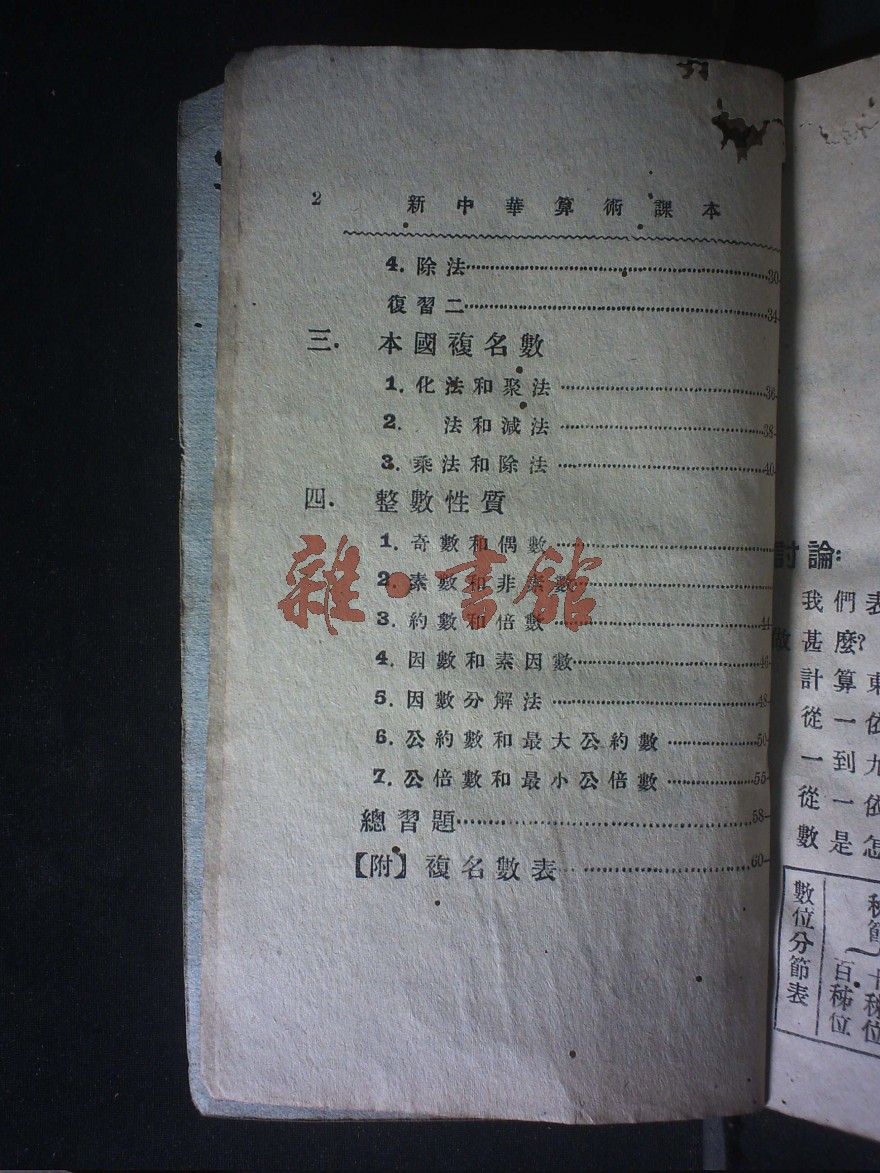 2 新中華算術課本
4. 除法……30-
復習二……34-
三. 本國複名數
1. 化法和聚法……36-
2. 法和減法……38-
3. 乘法和除法……40-
四. 整數性質
1. 奇數和偶數……
2. 素數和非素數……
3. 約數和倍數……44-
4. 因數和素因數……46-
5. 因數分解法……48-
6. 公約數和最大公約數……50-
7. 公倍數和最小公倍數……55-
總習題……58-
【附】複名數表……60-
雜·書館
討論:
我們表
做甚麼?
計算東
從一依
一到九
從一依
數是怎
數位分節表
百秭位
十秭位